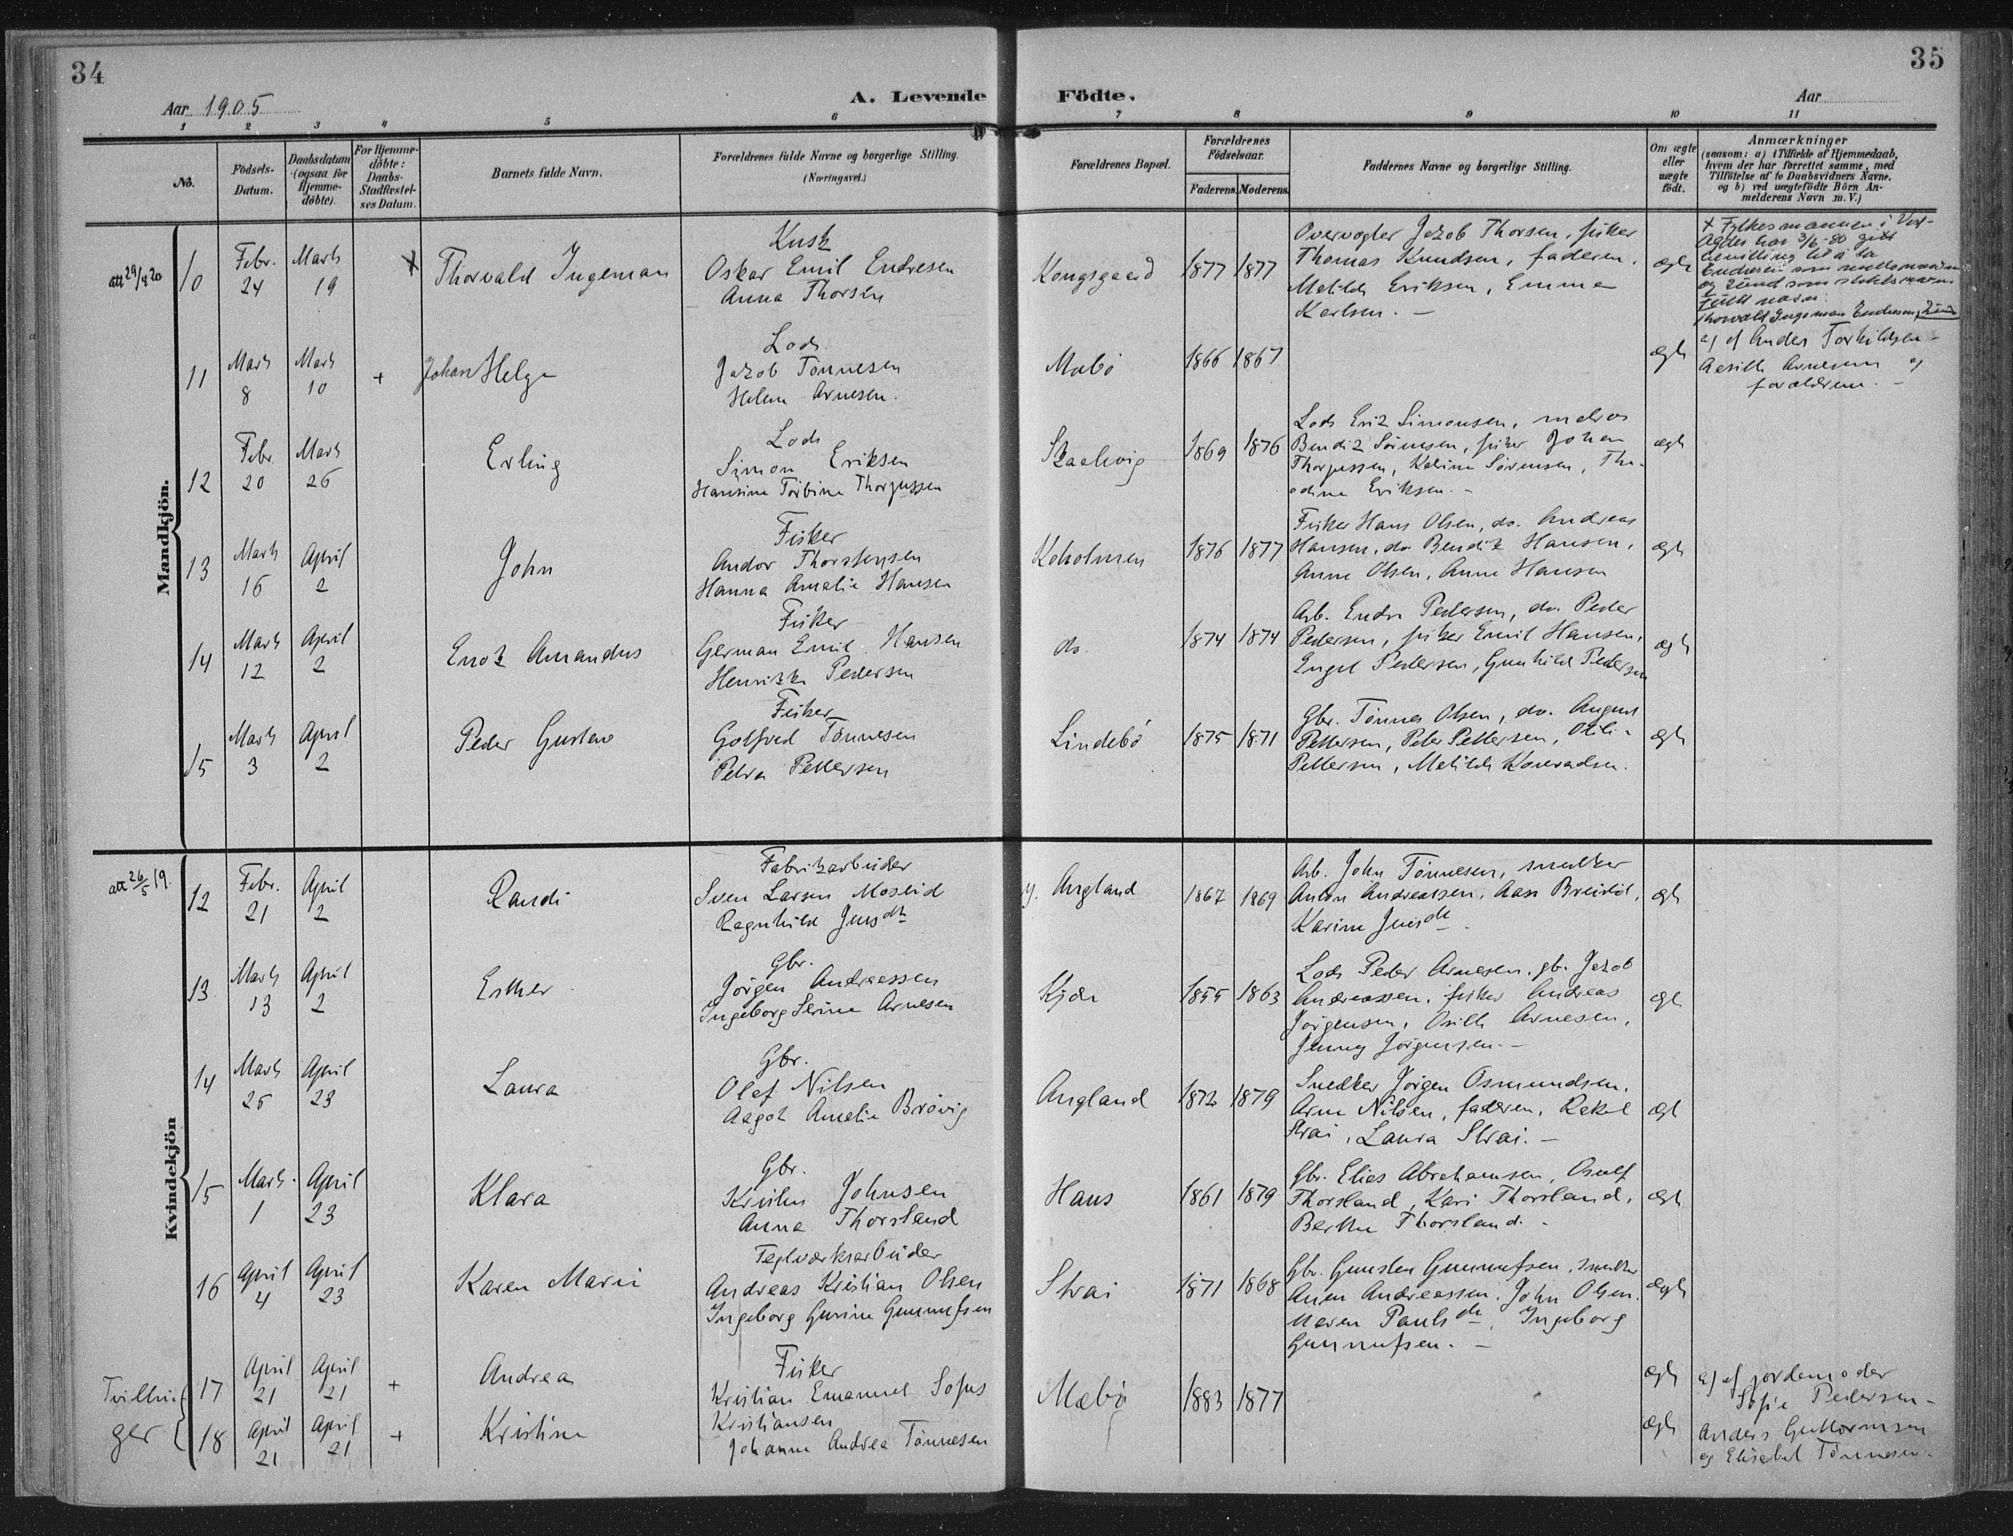 34
35
Aar 1905
A. Levende Födte.
Aar
1 2 3 4 5 6 7 8 9 10 11
No.
Födsels-
Datum.
Daabsdatum
(ogsaa for
Hjemme-
döbte).
For Hjemme-
döbte:
Daabs-
Stadfæstel-
ses Datum.
Barnets fulde Navn.
Forældrenes fulde Navne og borgerlige Stilling.
(Næringsvei.)
Forældrenes Bopæl.
Forældrenes
Födselsaar.
Faderens. Moderens.
Faddernes Navne og borgerlige Stilling.
Om ægte
eller
uægte
födt.
Anmærkninger
(saasom: a) i Tilfælde af Hjemmedaab,
hvem der har forrettet samme, med
Tilföielse af to Daabsvidners Navne,
og b) ved uægtefödte Börn An-
melderens Navn m. V.)
Mandkjön.
att 29/9 20
10
Febr.
24
Marts
19
X
Thorvald Ingeman
Kusk
Oskar Emil Endresen
Anna Thorsen
Kongsgaard
1877
1877
Overvogter Jakob Thorsen, fisker
Thomas Knudsen, faderen,
Matilde Eriksen, Emma
Karlsen. —
ægte
x Fylkesmannen i Vest-
Agder har 3/6-80 gitt
bevilling til å ta
Endresen som mellomnavn
og Lund som slektsnavn
Fullt navn:
Thorvald Ingeman Endresen Lund
11
Marts
8
Marts
10
+
Johan Helge
Lods
Jakob Tönnesen
Helene Arnesen.
Mæbö
1866
1867
ægte
a) af Anders Torkildsen -
Aasille Arnesen og
forældrene. —
12
Febr.
20
Marts
26
Erling
Lods
Simon Eriksen
Hansine Torbine Thorgussen
Skaalevig
1869
1876
Lods Erik Simonsen, matros
Bendik Sörensen, fisker Johan
Thorgussen, Kaline Sörensen, Tho-
odine Eriksen. —
ægte
13
Marts
16
April
2
John
Fisker
Andor Thorstensen
Hanna Amalie Hansen
Koholmen
1876
1877
Fisker Hans Olsen, do. Andreas
Hansen, do Bendik Hansen,
Anne Olsen, Anne Hansen
ægte
14
Marts
12
April
2
Enok Amandus
Fisker
German Emil Hansen
Henrikke Pedersen
do.
1874
1874
Arb. Endre Pedersen, do. Peder
Pedersen, fisker Emil Hansen,
Engel Pedersen, Gunhild Pedersen
ægte
15
Marts
3
April
2
Peder Gustav
Fisker
Gotfred Tönnesen
Petra Pettersen
Lindebö
1875
1871
Gbr. Tönnes Olsen, do. August
Pettersen, Peter Pettersen, Otilie
Pettersen, Matilde Konradsen.
ægte
Kvindekjön
att 26/5 19.
12
Febr.
21
April
2
Randi
Fabrikarbeider
Sven Larsen Moseid
Ragnhild Jensdtr
y. Augland
1867
1869
Arb. John Tönnesen, snedker
Anton Andreassen, Aase Breilid,
Karine Jensdtr.
ægte
13
Marts
13
April
2
Esther
Gbr.
Jörgen Andreassen
Ingeborg Serine Arnesen
Kjær
1855
1863
Lods Peder Arnesen, gbr. Jakob
Andreassen, fisker Andreas
Jörgensen, Osille Arnesen,
Jenny Jörgensen. —
ægte
14
Marts
25
April
23
Laura
Gbr.
Olaf Nilsen
Aagot Amalie Brövig
Augland
1872
1879
Snedker Jörgen Osmundsen,
Arne Nilsen, faderen, Rakel
Strai, Laura Strai. —
ægte
15
Marts
1
April
23
Klara
Gbr.
Kristen Johnsen
Anna Thorsland
Haus
1861
1879
Gbr. Elias Abrahamsen, Osulf
Thorsland, Kari Thorsland,
Berthe Thorsland. -
ægte
16
April
4
April
23
Karen Marie
Teglværksarbeider
Andreas Kristian Olsen
Ingeborg Gurine Gunnufsen
Strai
1871
1868
Gbr. Gunsten Gunnufsen, snedker
Anen Andreassen, John Olsen,
Maren Paulsdtr, Ingeborg
Gunnufsen. —
ægte
Tvillin-
ger
17
April
21
April
21
+
Andrea
Fisker
Kristian Emanuel Sofus
Kristiansen
Johanne Andrea Tönnesen
Mæbö
1883
1877
ægte
a) af jordemoder
Sofie Pedersen -
Anders Guttormsen
og Elisabet Tönnesen.
18
April
21
April
21
+
Kristine
ægte